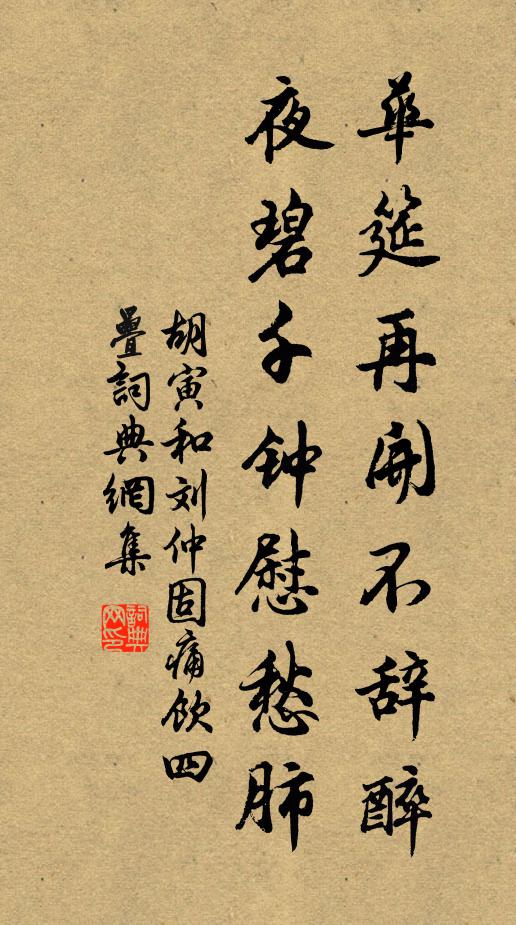 華筵再開不辞醉
夜碧千钟慰愁肺
胡寅和刘仲固痛饮四
疊詞典網集
詞典网印